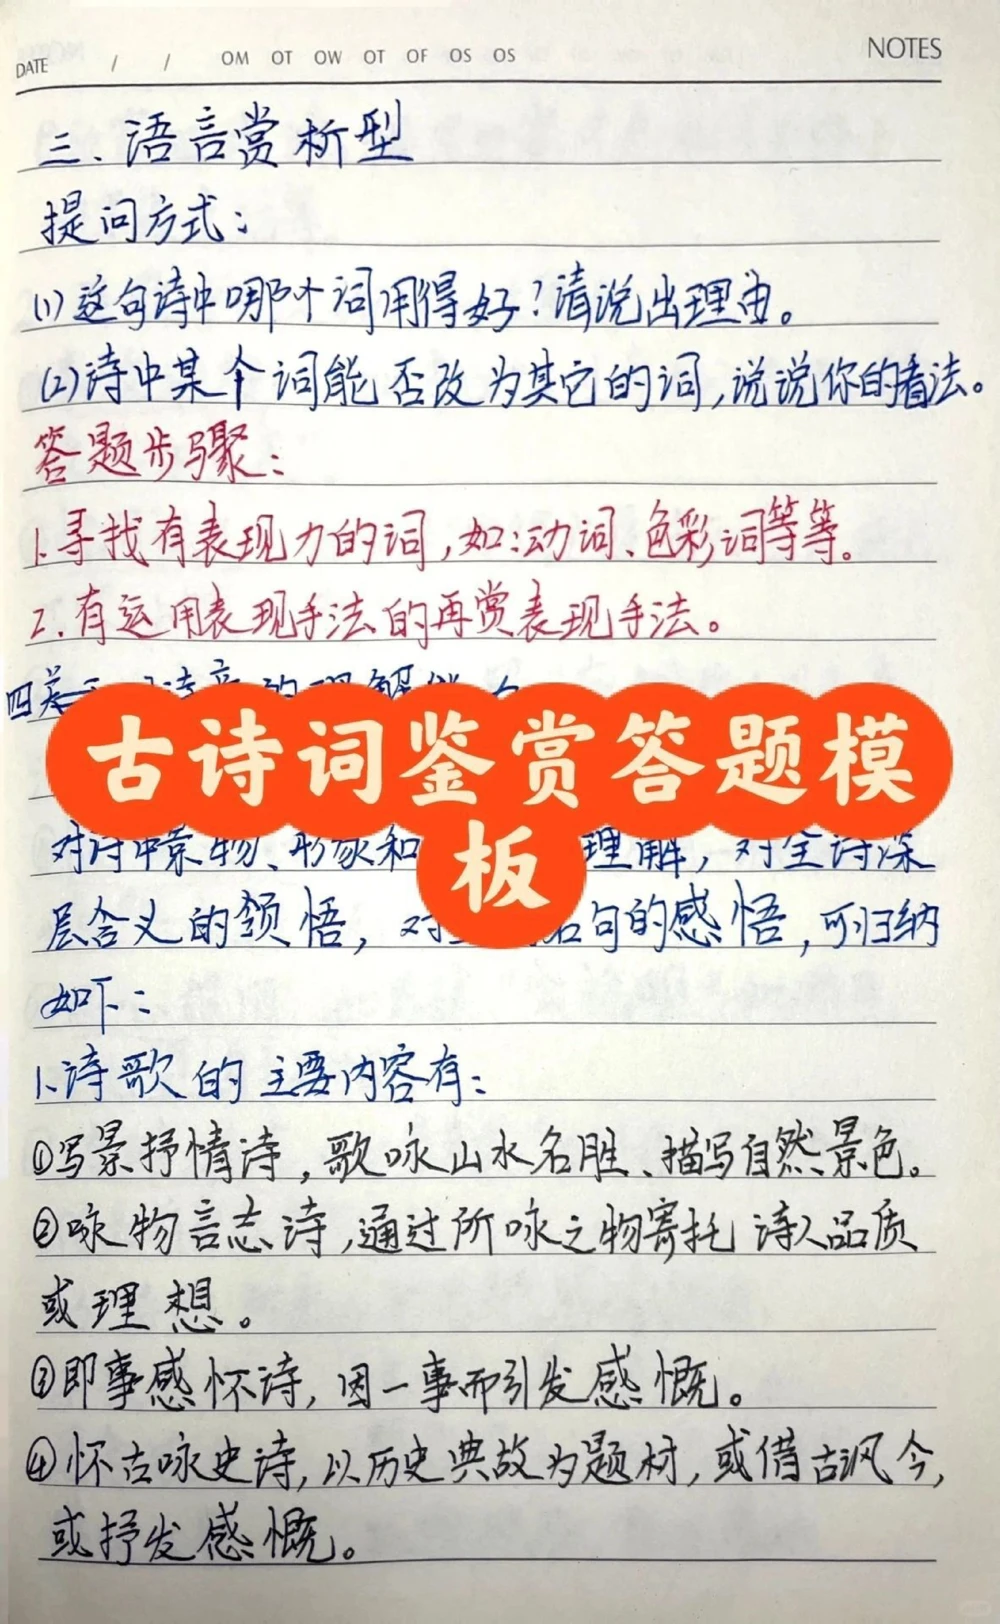 DATE / / OM OT OW OT OF OS OS NOTES
三、语言赏析型
提问方式：
(1)这句诗中哪个词用得好？请说出理由。
(2)诗中某个词能否改为其它的词，说说你的看法。
答题步骤：
1.寻找有表现力的词，如：动词、色彩词等等。
2.有运用表现手法的再赏表现手法。
四
古诗词鉴赏答题模
板
对诗中景物、形象和 理解，对全诗深
层含义的领悟，对 名句的感悟，可归纳
如下：
1.诗歌的主要内容有：
①写景抒情诗，歌咏山水名胜、描写自然景色。
②咏物言志诗，通过所咏之物寄托诗人品质
或理想。
③即事感怀诗，因一事而引发感慨。
④怀古咏史诗，以历史典故为题材，或借古讽今，
或抒发感慨。